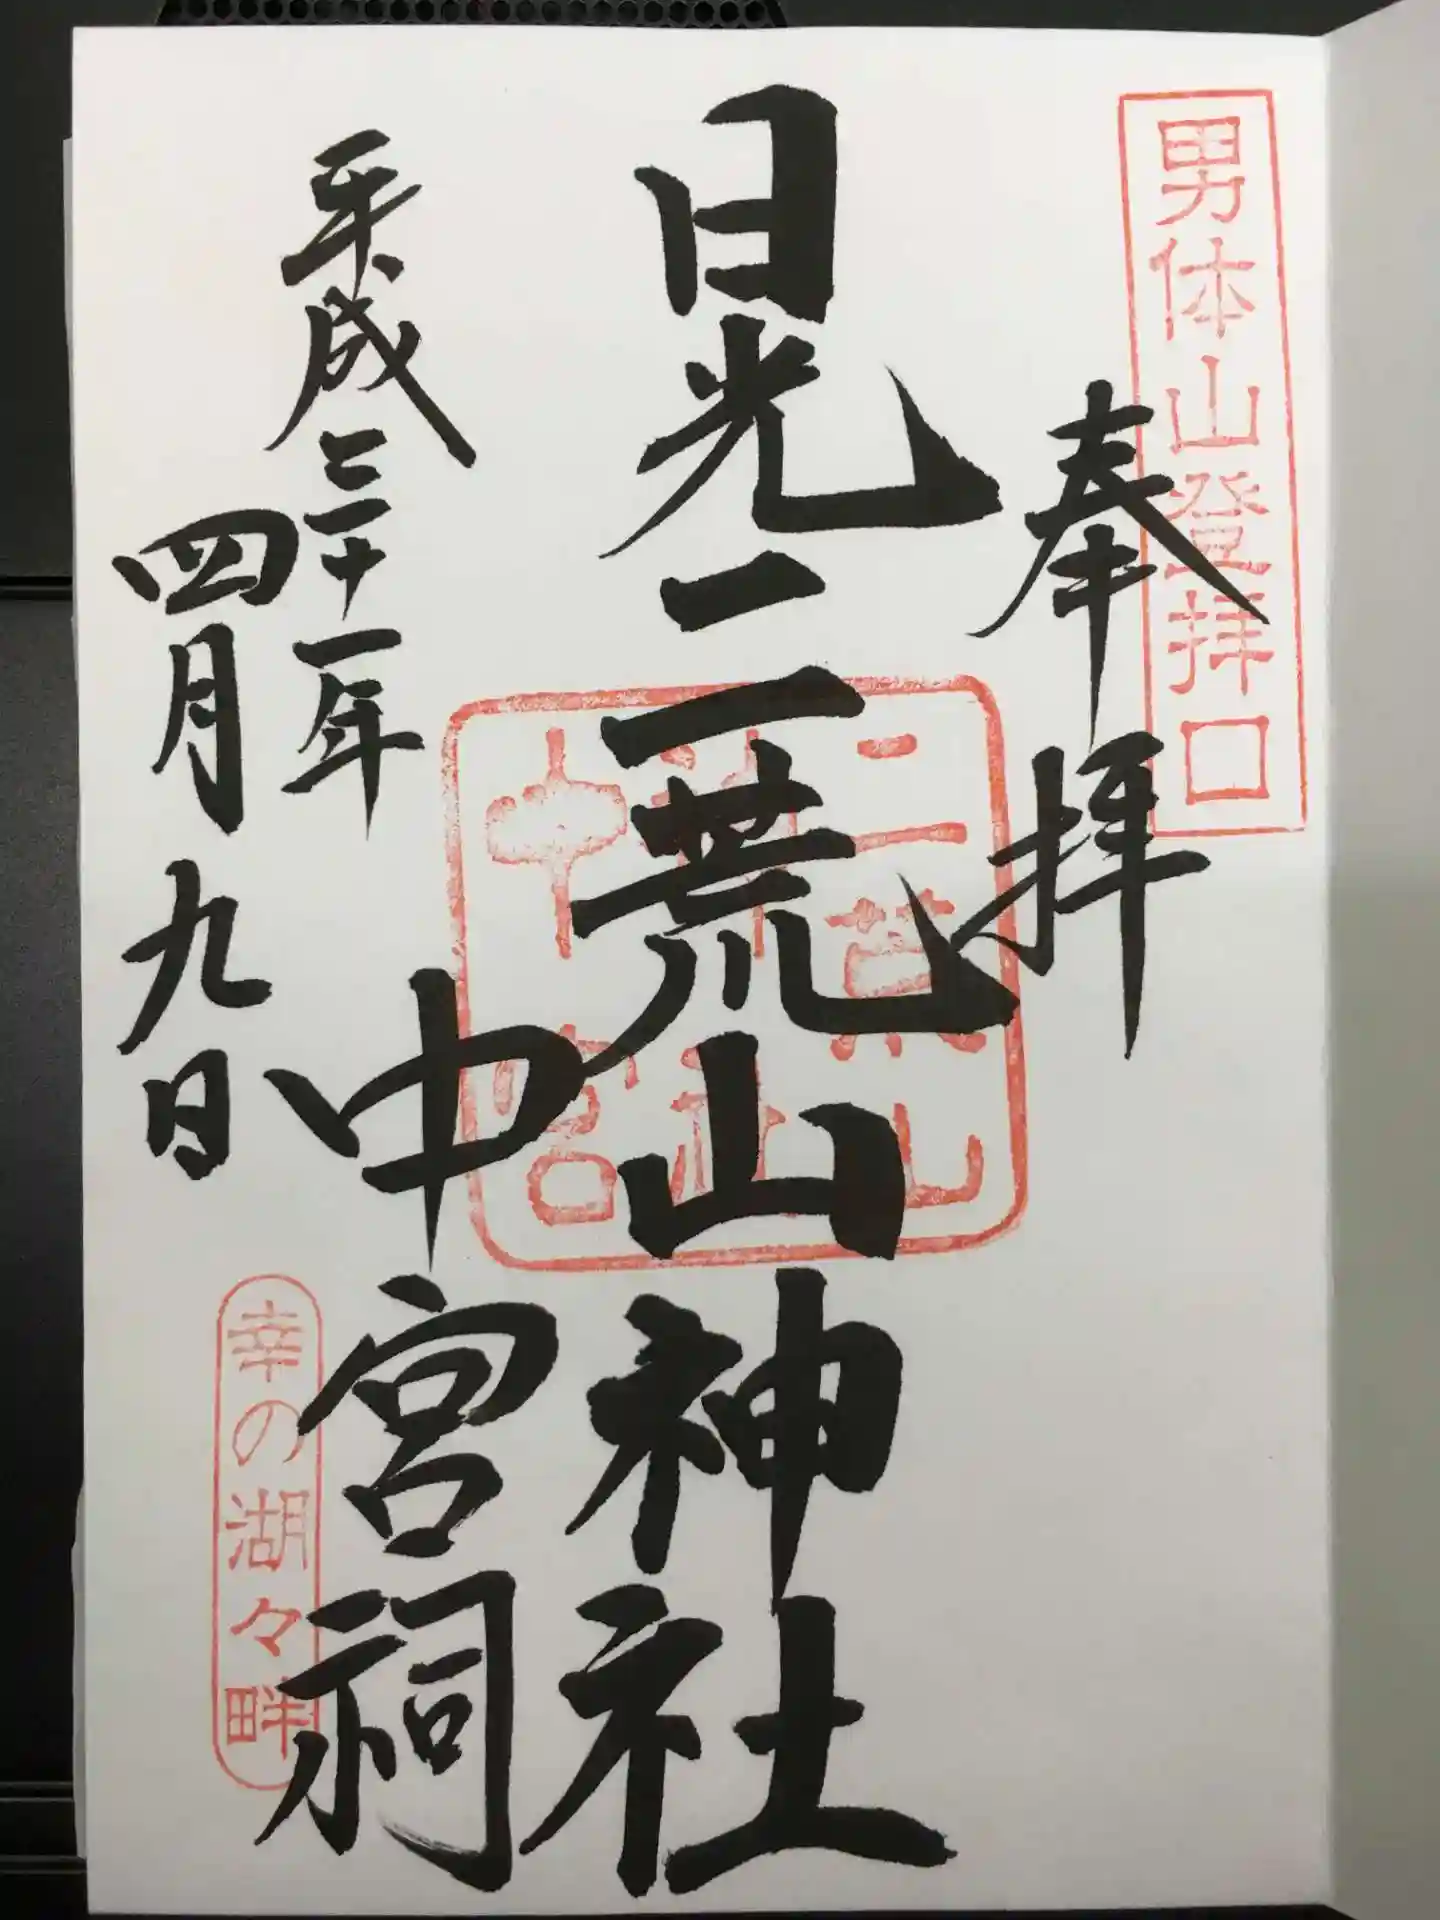 男体山登拝口
奉拝
日光二荒山神社
中宮祠
二荒山
神社
中宮
平成三十一年
四月九日
幸の湖々畔